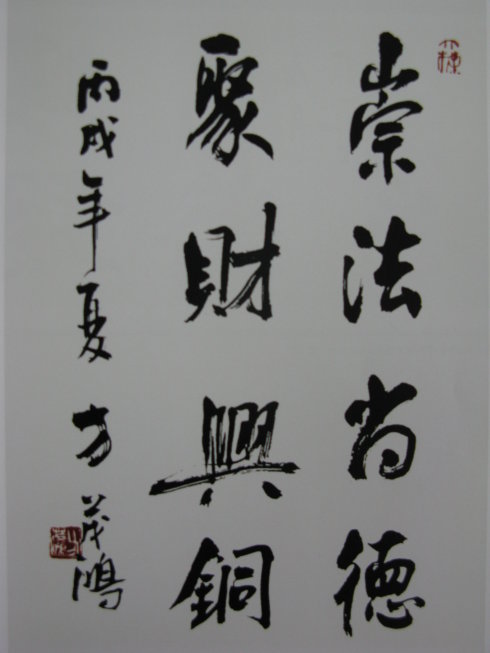 崇法尚德
聚財興銅
丙戌年夏 方茂鴻